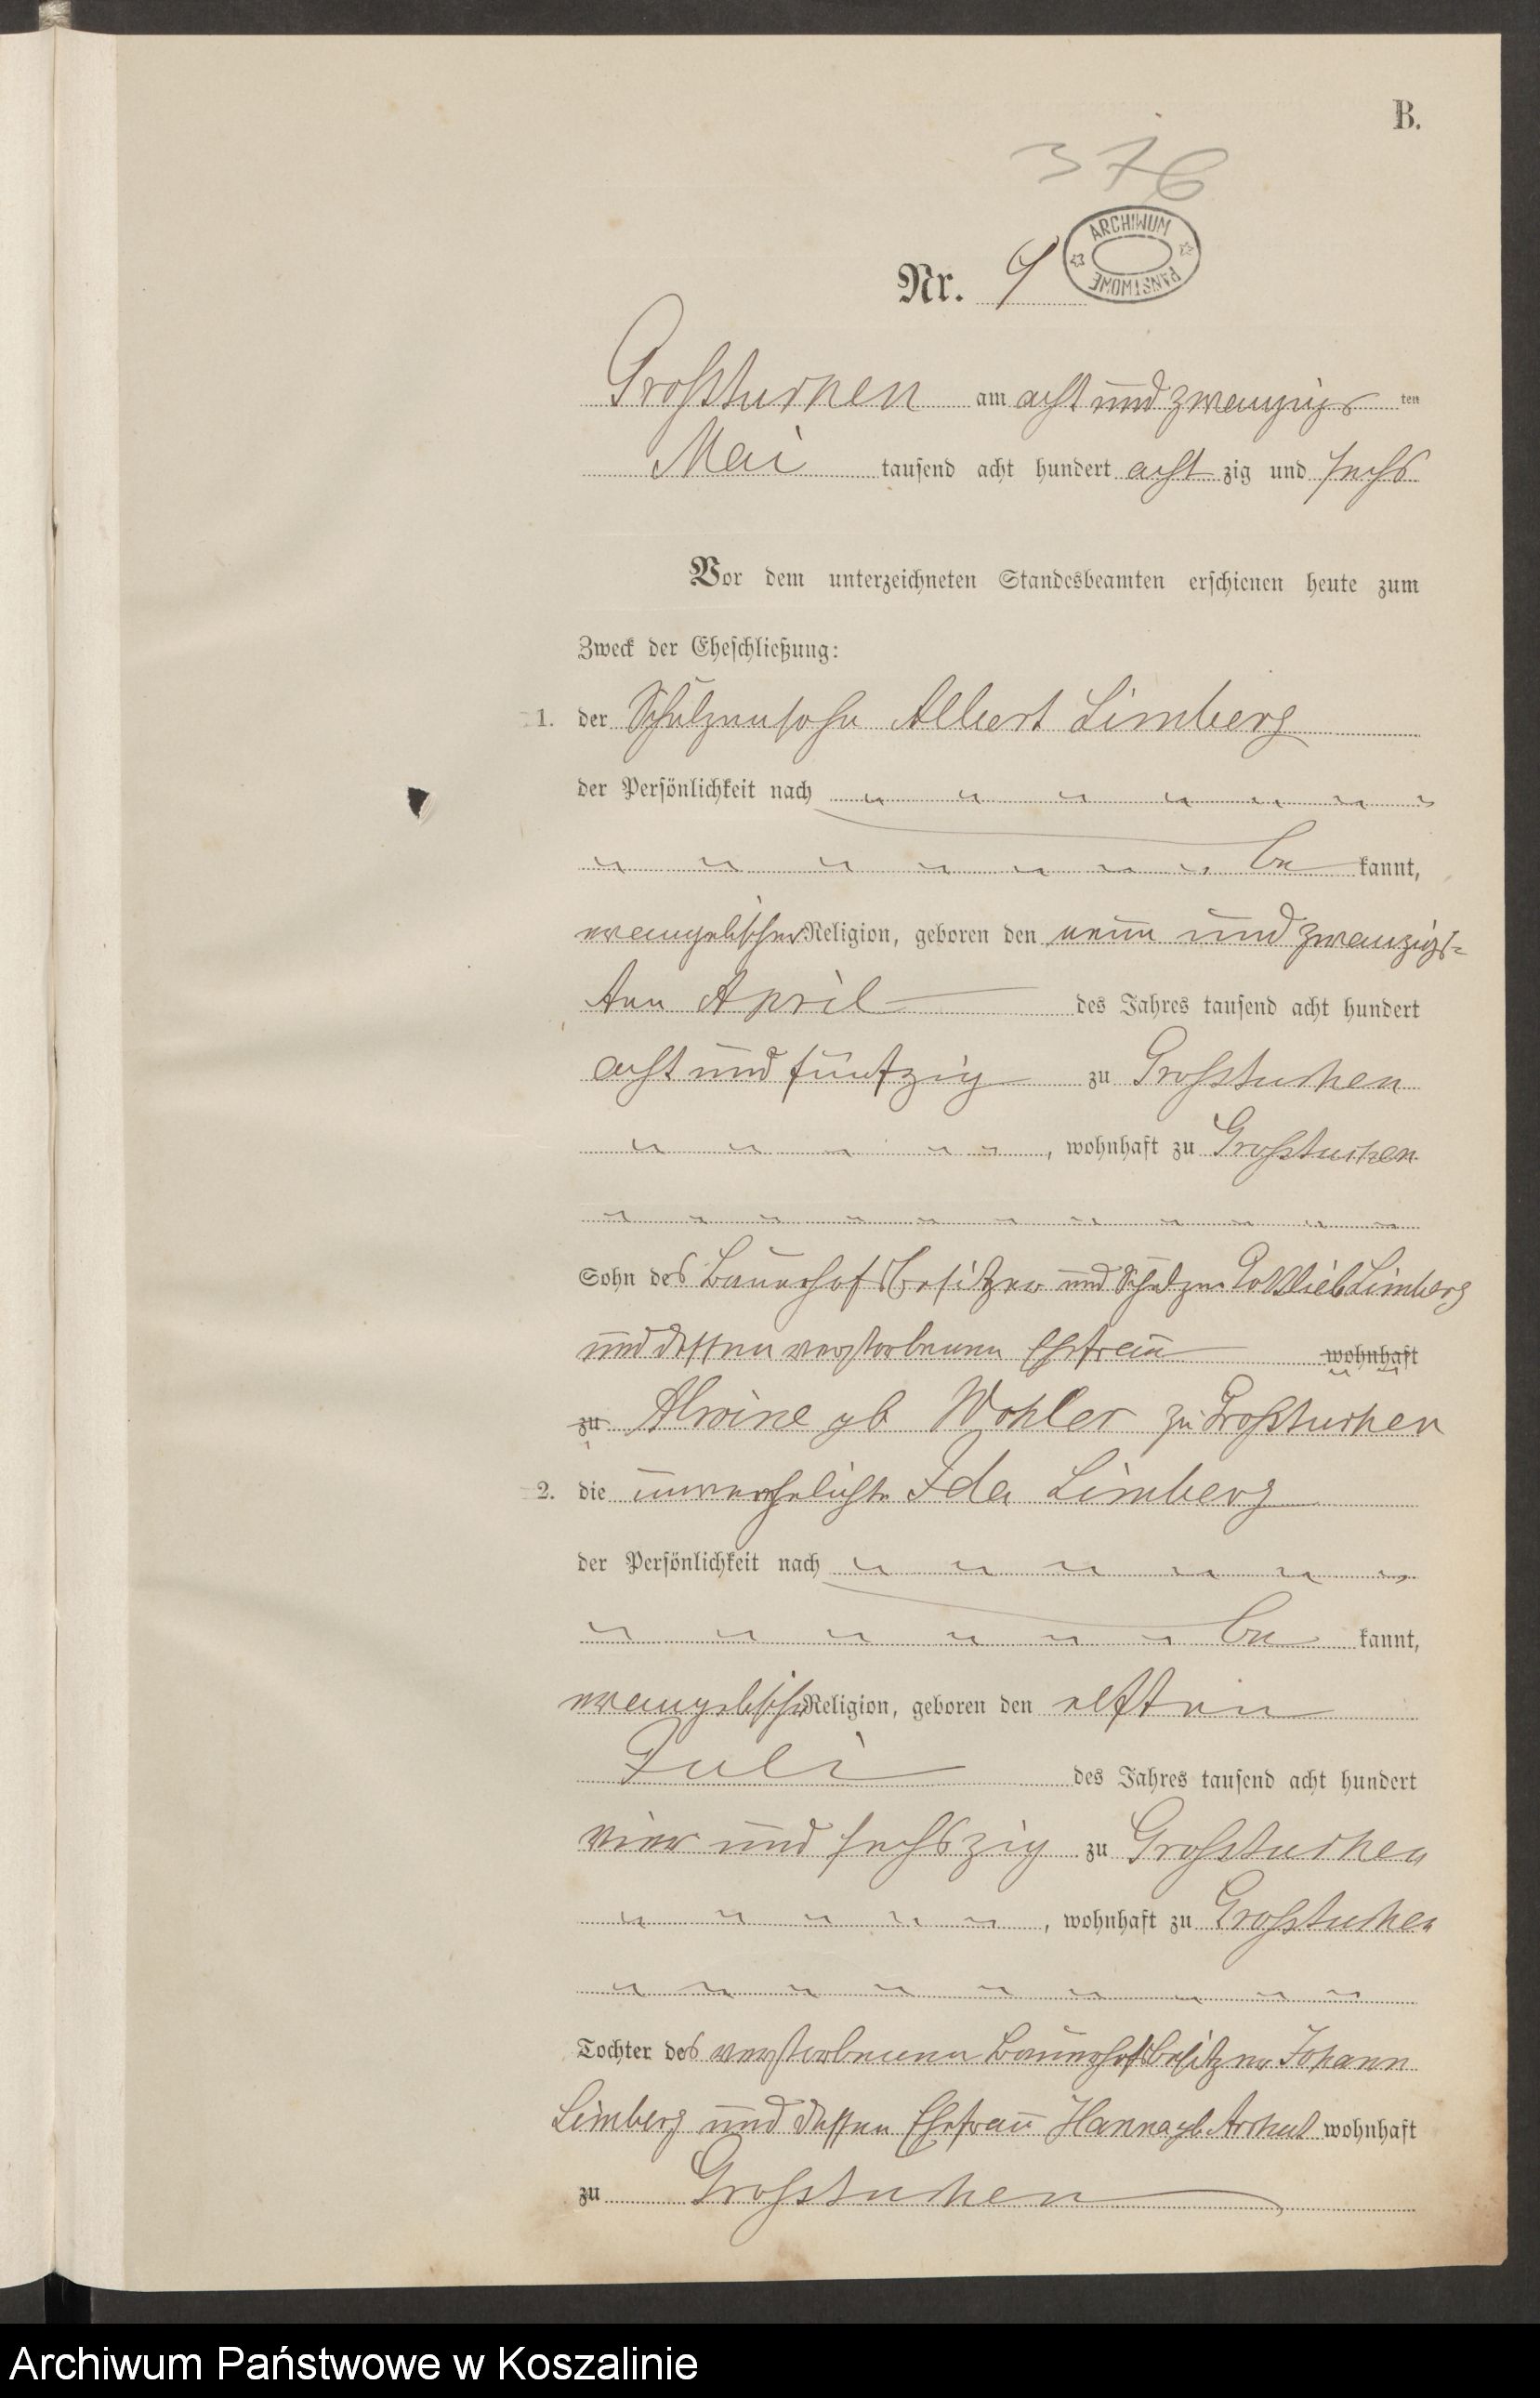 B.
376
Nr. 9
ARCHIWUM PAŃSTWOWE
Großtuchen am acht und zwanzigs ten
Mai tausend acht hundert acht zig und sechs
Vor dem unterzeichneten Standesbeamten erschienen heute zum
Zweck der Eheschließung:
1. der Schulzensohn Albert Limberg
der Persönlichkeit nach
be kannt,
evangelischer Religion, geboren den neun und zwanzigs=
ten April des Jahres tausend acht hundert
acht und fünfzig zu Großtuchen
, wohnhaft zu Großtuchen
Sohn des Bauerhofsbesitzer und Schulzen Gottlieb Limberg
und dessen verstorbenen Ehefrau wohnhaft
zu Alwine gb Wohler zu Großtuchen
2. die unverehelichte Ida Limberg
der Persönlichkeit nach
be kannt,
evangelischer Religion, geboren den elften
Juli des Jahres tausend acht hundert
vier und sechszig zu Großtuchen
, wohnhaft zu Großtuchen
Tochter des verstorbenen Bauerhofsbesitzer Johann
Limberg und dessen Ehefrau Hanna gb. wohnhaft
zu Großtuchen
Archiwum Państwowe w Koszalinie